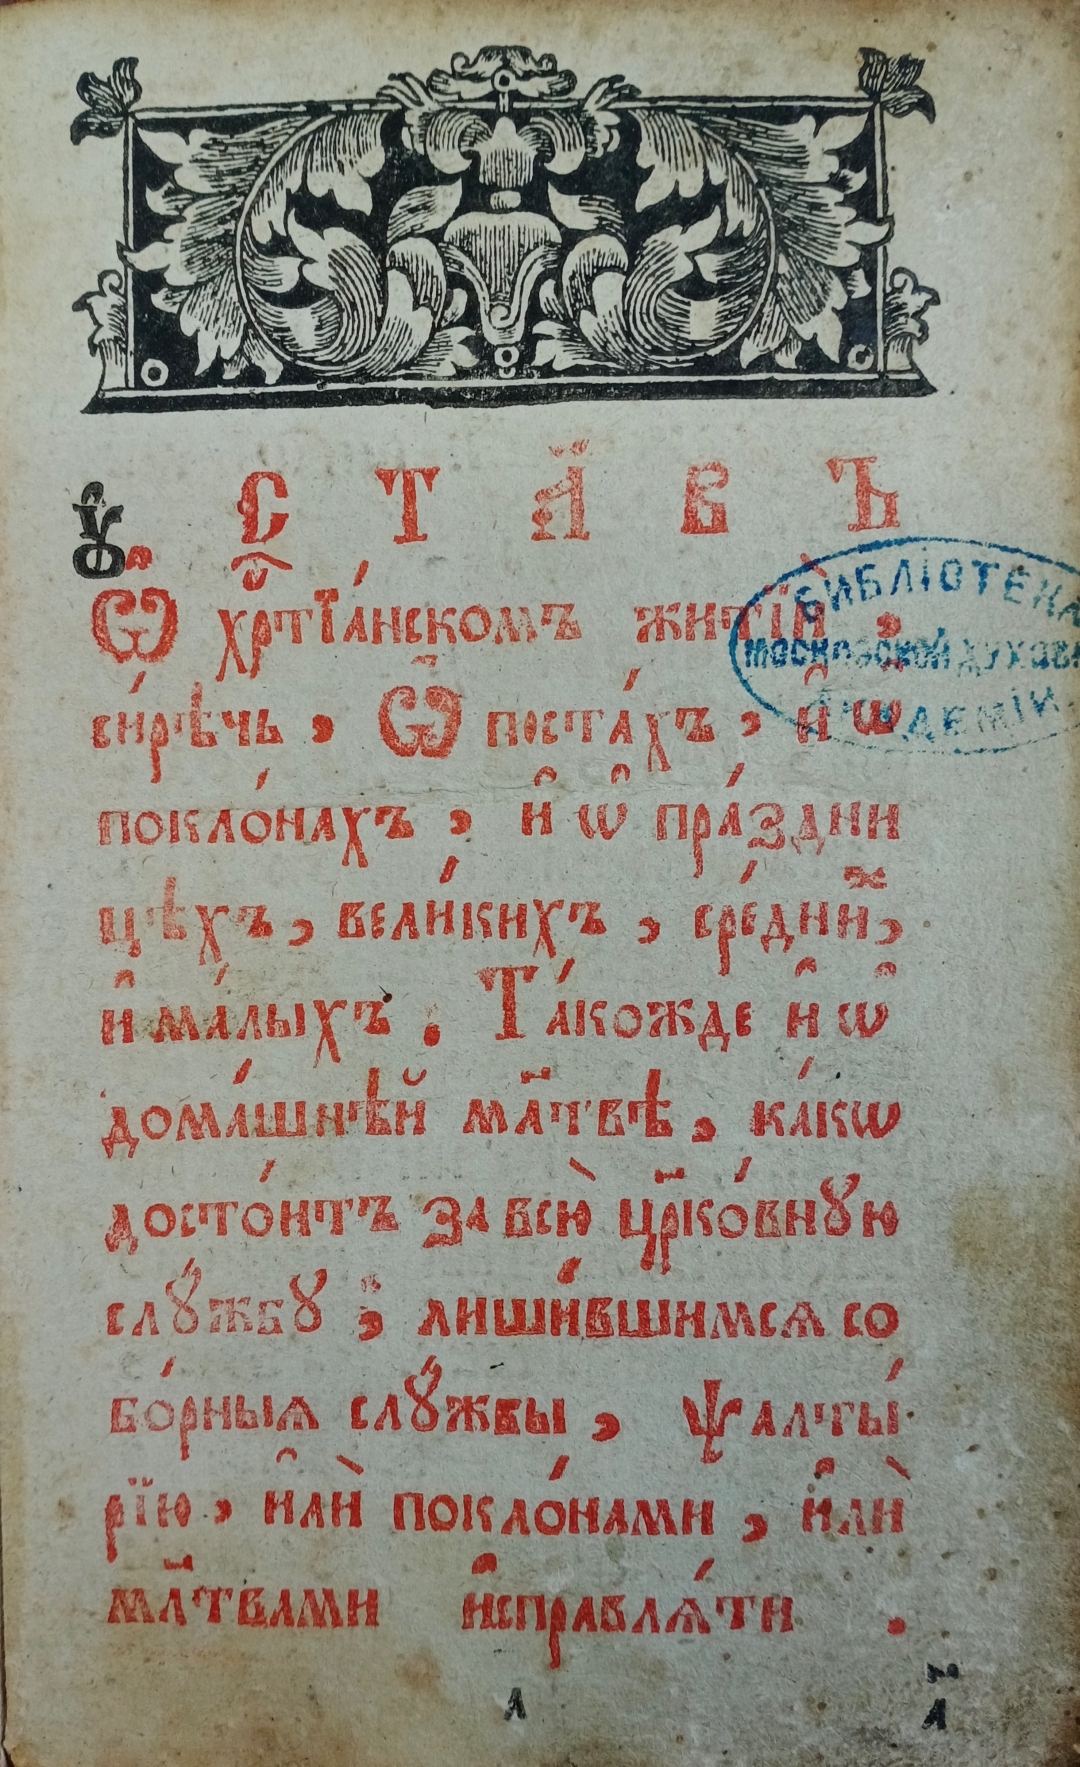 Ꙋ С Т А̓́ В Ъ
Ѽ хрⷭ҇тїа́нскомъ житїѝ,
си́рѣчь, Ѽ поста́хъ, и҆ ѡ҆
покло́нахъ, и҆ ѡ҆ пра́здни
цѣхъ, вели́кихъ, сре́дниⷯ,
и҆ ма́лыхъ. Та́кожде и҆ ѡ҆
дома́шнѣй мл҃твѣ, ка́кѡ
досто́итъ за всю̀ цр҃ко́вную
слꙋ́жбꙋ; лиши́вшимся со
бо́рныя слꙋ́жбы, ѱалты́
рїю, и҆лѝ покло́нами, и҆лѝ
мл҃твами и҆справлѧ́ти.
л л҃
БИБЛІОТЕКА
МОСКОВСКОЙ ДУХОВН
АКАДЕМІИ